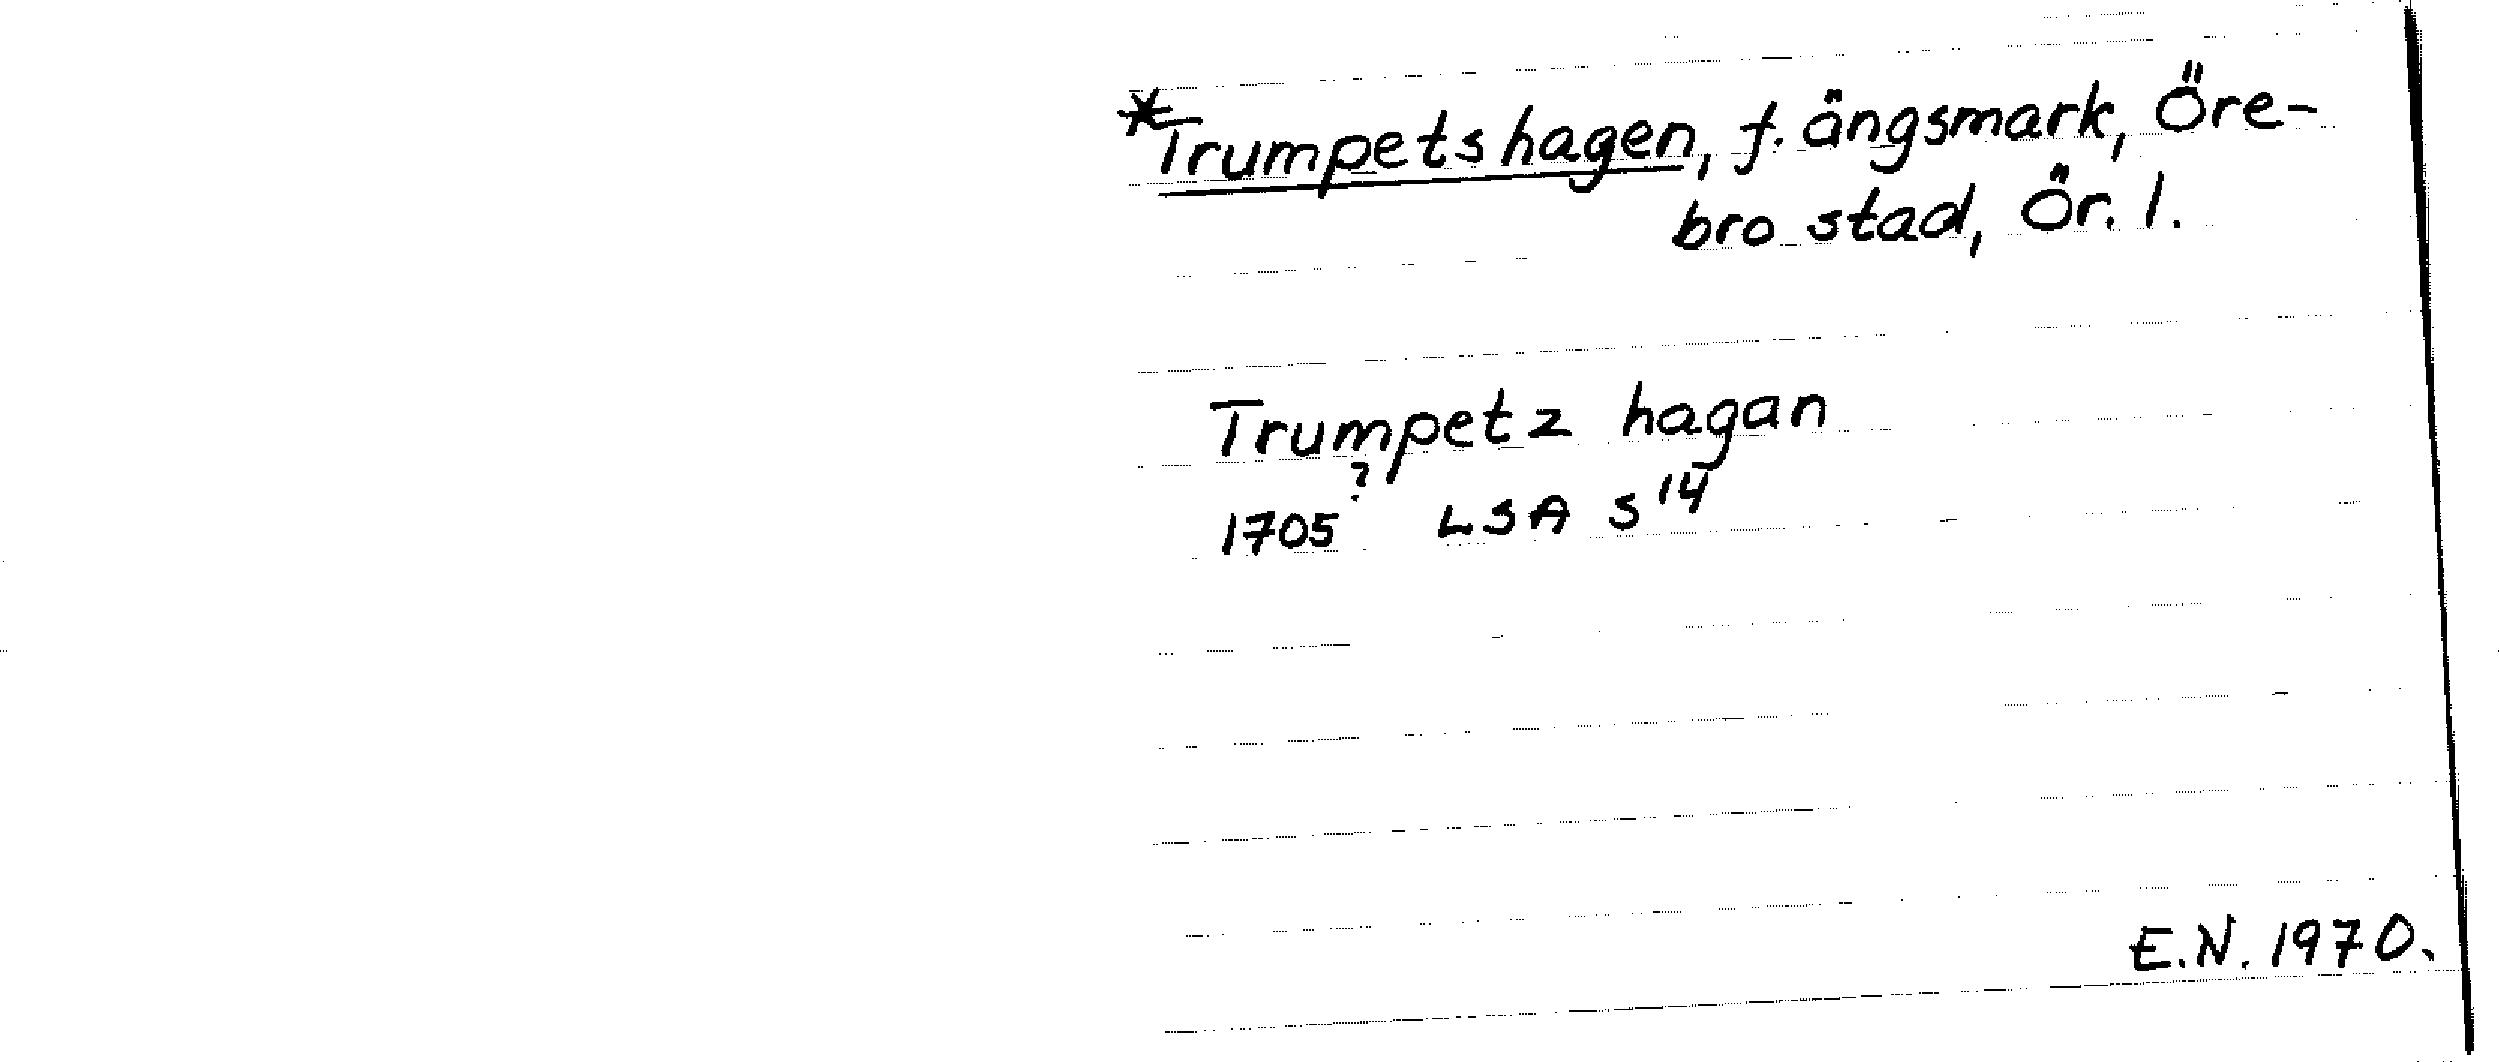 *Trumpetshagen, f. ängsmark, Öre-
bro stad, Ör. l.
Trumpetz hagan
1705? LSA S14
E.N. 1970.